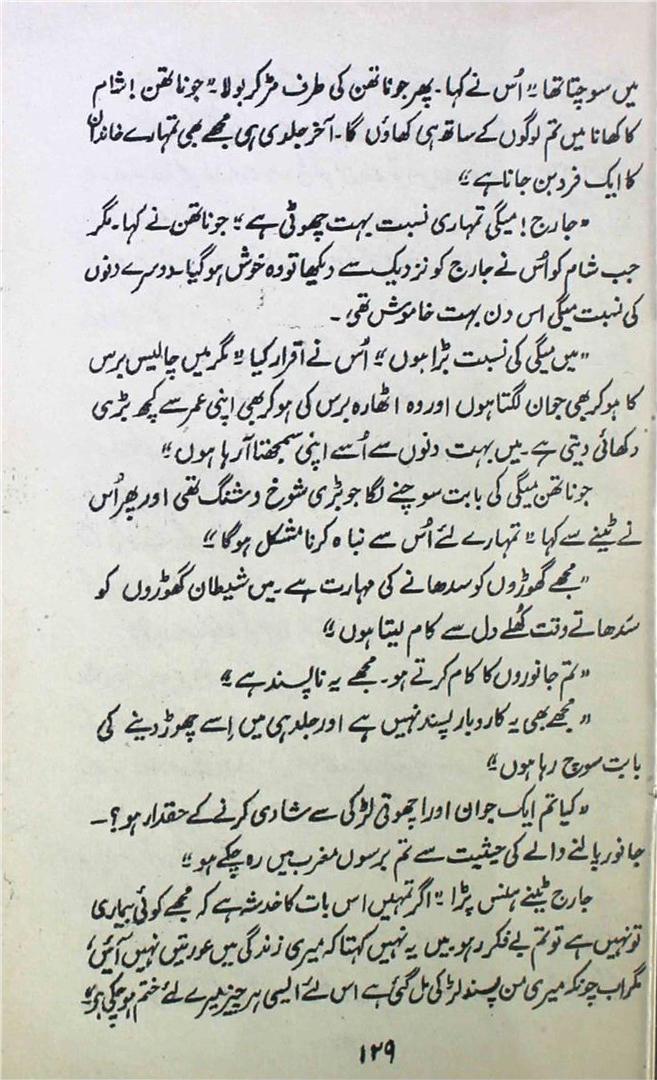 میں سوچتا تھا۔" اُس نے کہا۔ پھر جوناتھن کی طرف مڑ کر بولا۔ "جوناتھن! شام
کا کھانا میں تم لوگوں کے ساتھ ہی کھاؤں گا۔ آخر جلدی ہی مجھے بھی تمہارے خاندان
کا ایک فرد بن جانا ہے۔"
"جارج! میگی تمہاری نسبت بہت چھوٹی ہے۔" جوناتھن نے کہا۔ مگر
جب شام کو اُس نے جارج کو نزدیک سے دیکھا تو وہ خوش ہو گیا۔ دوسرے دنوں
کی نسبت میگی اس دن بہت خاموش تھی۔
"میں میگی کی نسبت بڑا ہوں۔" اُس نے اقرار کیا۔ "مگر میں چالیس برس
کا ہو کر بھی جوان لگتا ہوں اور وہ اٹھارہ برس کی ہو کر بھی اپنی عمر سے کچھ بڑی
دکھائی دیتی ہے۔ میں بہت دنوں سے اُسے اپنی سمجھتا آ رہا ہوں۔"
جوناتھن میگی کی بابت سوچنے لگا جو بڑی شوخ و شنگ تھی اور پھر اُس
نے ٹینے سے کہا۔ "تمہارے لئے اُس سے نباہ کرنا مشکل ہوگا۔"
"مجھے گھوڑوں کو سدھانے کی مہارت ہے۔ میں شیطان گھوڑوں کو
سَدھاتے وقت کھُلے دل سے کام لیتا ہوں۔"
"تم جانوروں کا کام کرتے ہو۔ مجھے یہ ناپسند ہے۔"
"مجھے بھی یہ کاروبار پسند نہیں ہے اور جلد ہی میں اِسے چھوڑ دینے کی
بابت سوچ رہا ہوں۔"
"کیا تم ایک جوان اور اچھوتی لڑکی سے شادی کرنے کے حقدار ہو؟۔
جانور پالنے والے کی حیثیت سے تم برسوں مغرب میں رہ چکے ہو۔"
جارج ٹینے ہنس پڑا۔ "اگر تمہیں اس بات کا خدشہ ہے کہ مجھے کوئی بیماری
تو نہیں ہے تو تم بے فکر رہو۔ میں یہ نہیں کہتا کہ میری زندگی میں عورتیں نہیں آئیں،
مگر اب چونکہ میری من پسند لڑکی مل گئی ہے اس لئے ایسی ہر چیز میرے لئے ختم ہو چکی ہے۔"
۱۲۹